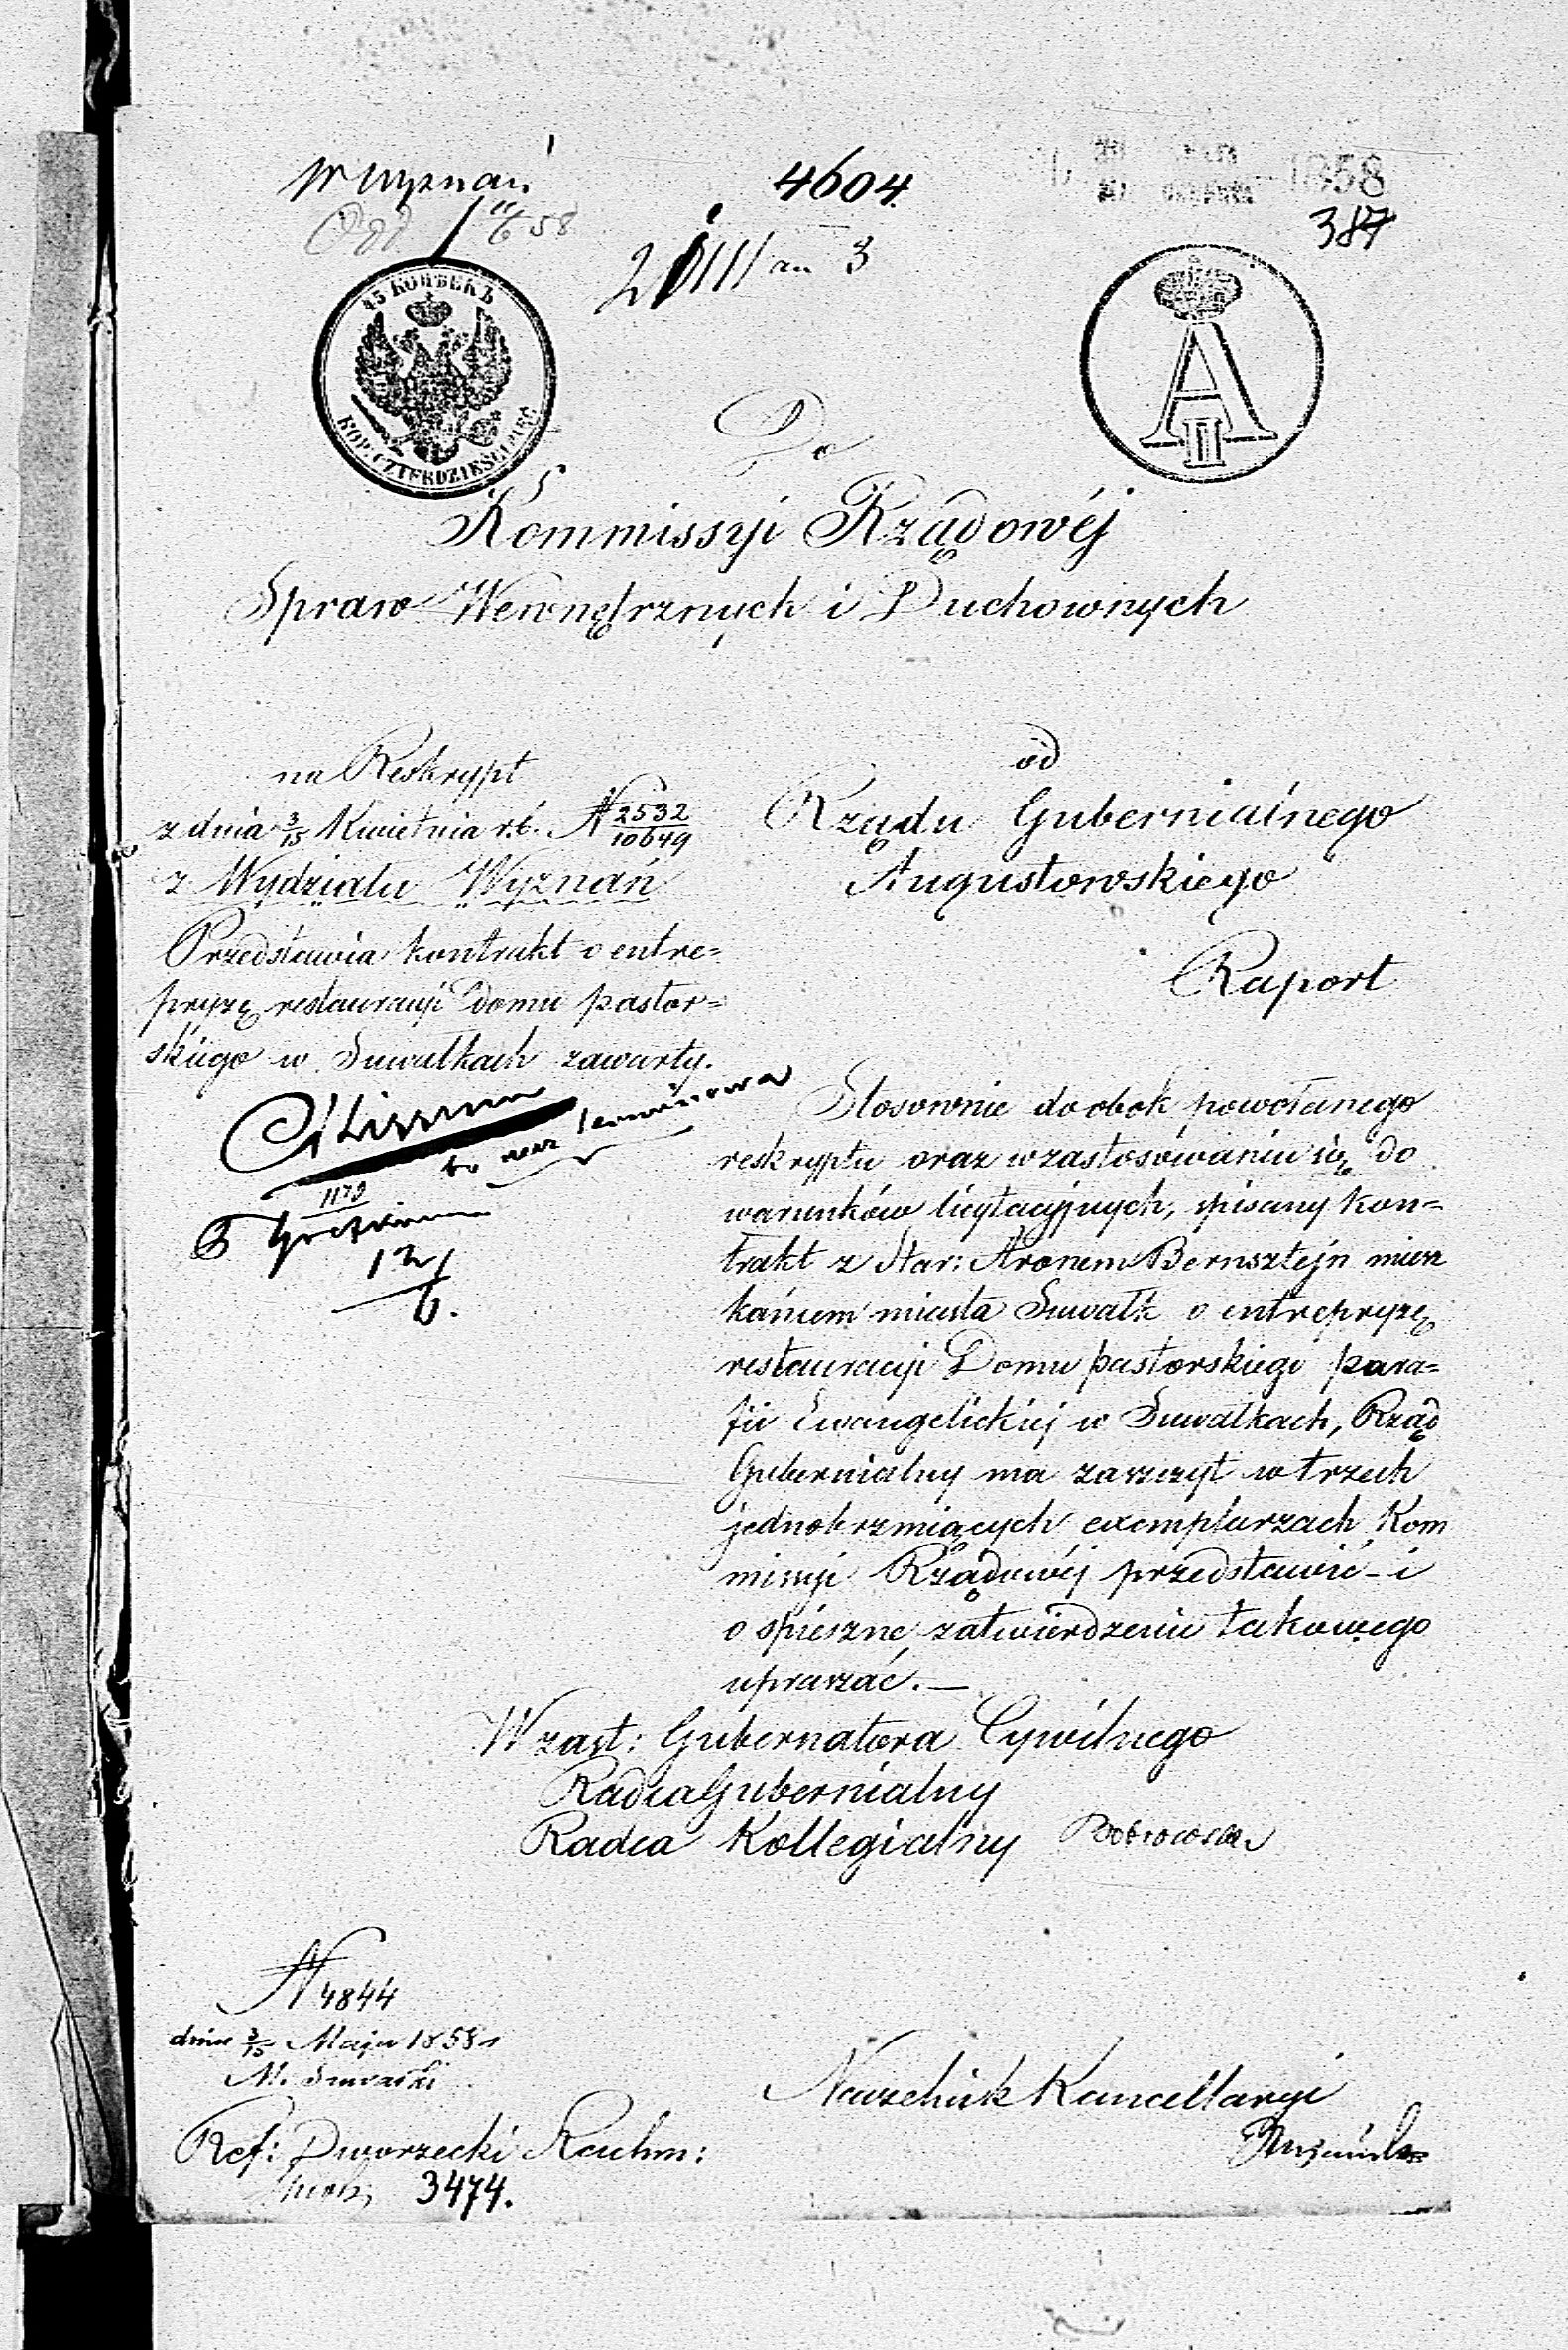 W Wyznań
4604.
1858
387
45 КОПѢЕКЪ
KOP. CZTERDZIEŚCI PIĘĆ
A II
Do
Kommissyi Rządowéj
Spraw Wewnętrznych i Duchownych
na Reskrypt
z dnia 3/15 Kwietnia r.b. N 2532/10649
z Wydziału Wyznań
Przedstawia kontrakt o entre=
pryzę restauracyi Domu pastor=
skiego w Suwałkach zawarty.
1179
12/6.
od
Rządu Gubernialnego
Augustowskiego
Raport
Stosownie do obok powołanego
reskryptu oraz w zastosowaniu się do
warunków licytacyjnych, spisany kon=
trakt z Star: Aronem Bernsztejn miesz
kańcem miasta Suwałk o entrepryzę
restauracyi Domu pastorskiego para=
fii Ewangelickiej w Suwałkach, Rząd
Gubernialny ma zaszczyt w trzech
jednobrzmiących exemplarzach Kom
missyi Rządowéj przedstawić - i
o spieszne zatwierdzenie takowego
upraszać. —
W zast: Gubernatora Cywilnego
Radca Gubernialny
Radca Kollegialny
N 4844
dnia 3/15 Maja 1858 r
M. Suwałki
Naczelnik Kancellaryi
Ref: Dworzecki
3474.